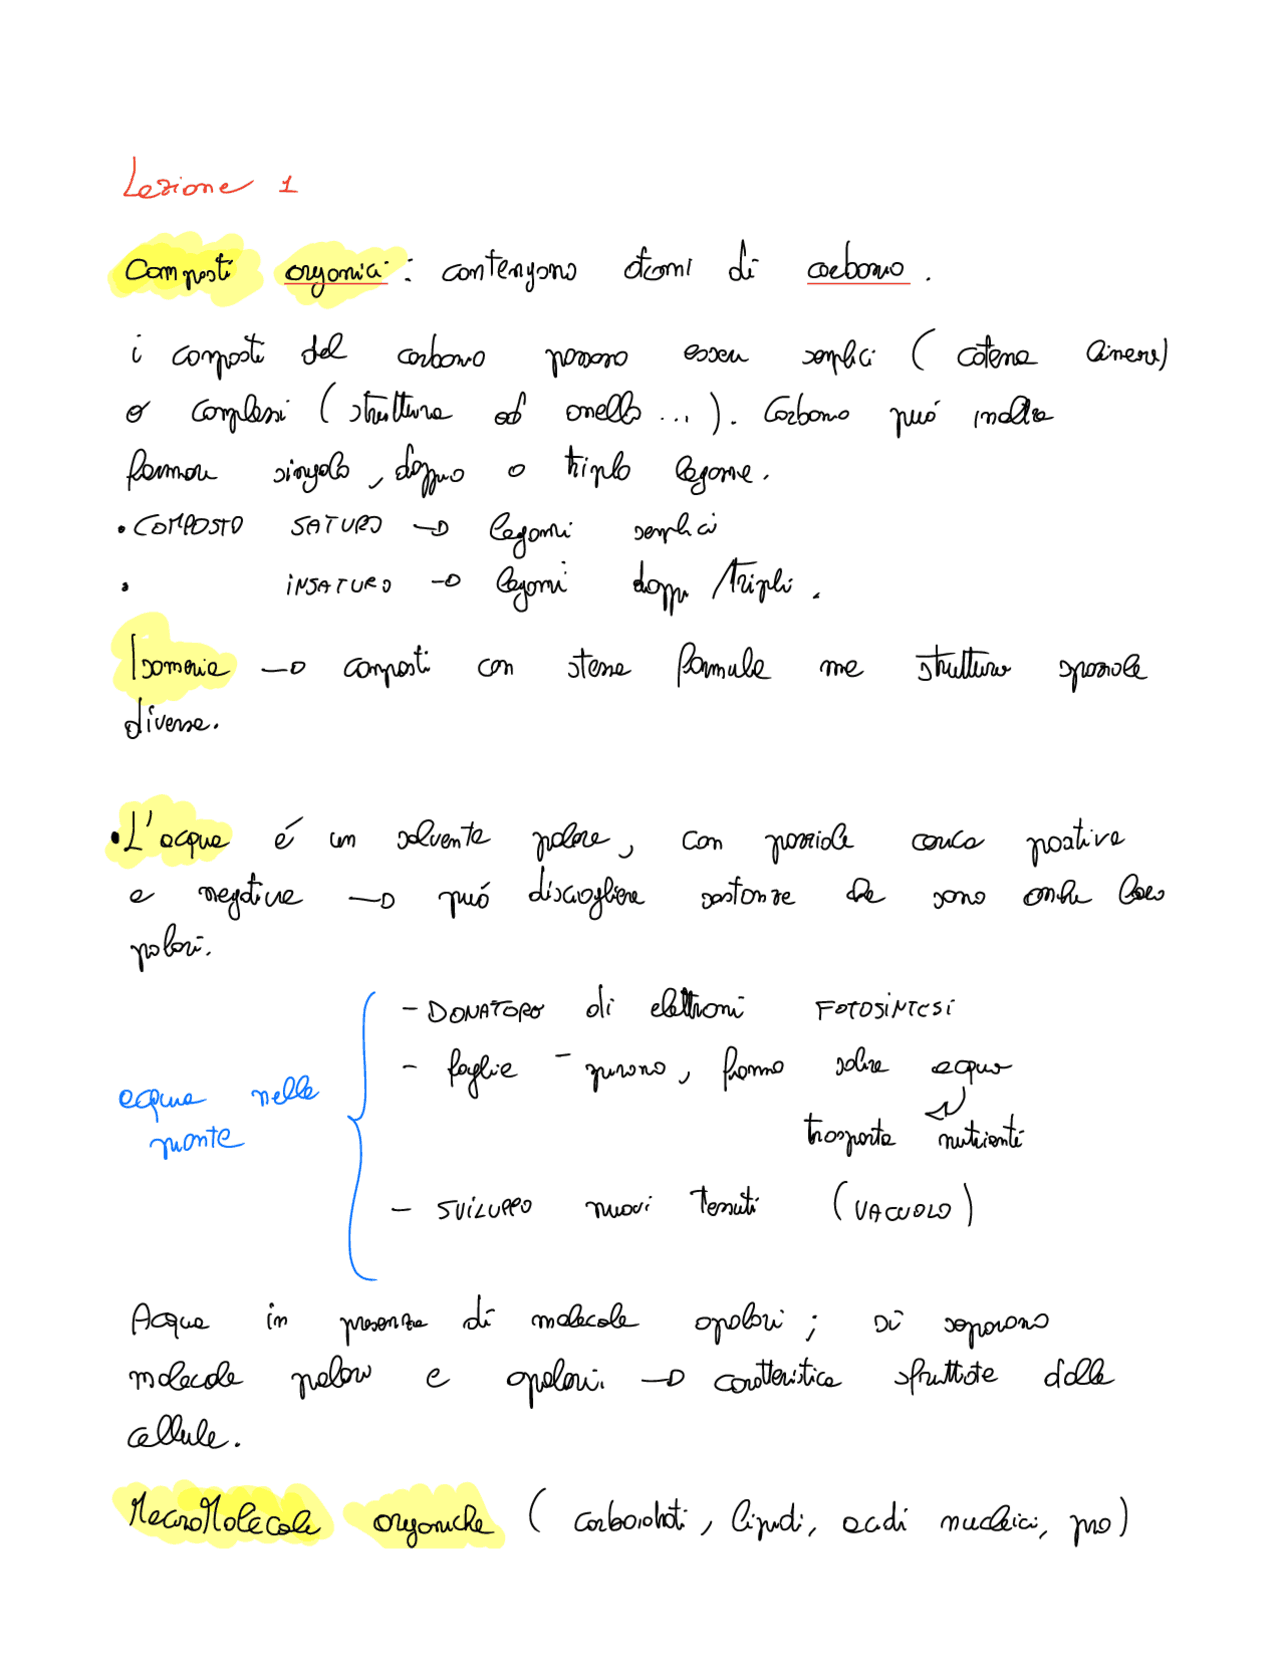 Lezione 1
Composti organici: contengono atomi di carbonio.
i composti del carbonio possono essere semplici (catena lineare)
o complessi (struttura ad anello...). Carbonio può inoltre
formare singolo, doppio o triplo legame.
• COMPOSTO SATURO → legami semplici
• INSATURO → legami doppi/tripli.
Isomeria → composti con stessa formula ma struttura spaziale
diversa.
• L'acqua é un solvente polare, con parziale carica positiva
e negativa → puó disciogliere sostanze che sono anche loro
polari.
- DONATORE di elettroni FOTOSINTESI
- foglie - fanno salire acqua
acqua nelle
piante
trasporta nutrienti
- SVILUPPO nuovi tessuti (VACUOLO)
Acqua in presenza di molecole apolari; si separano
molecole polari e apolari. → caratteristica sfruttata dalle
cellule.
MacroMolecole organiche (carboidrati, lipidi, acidi nucleici, pro)